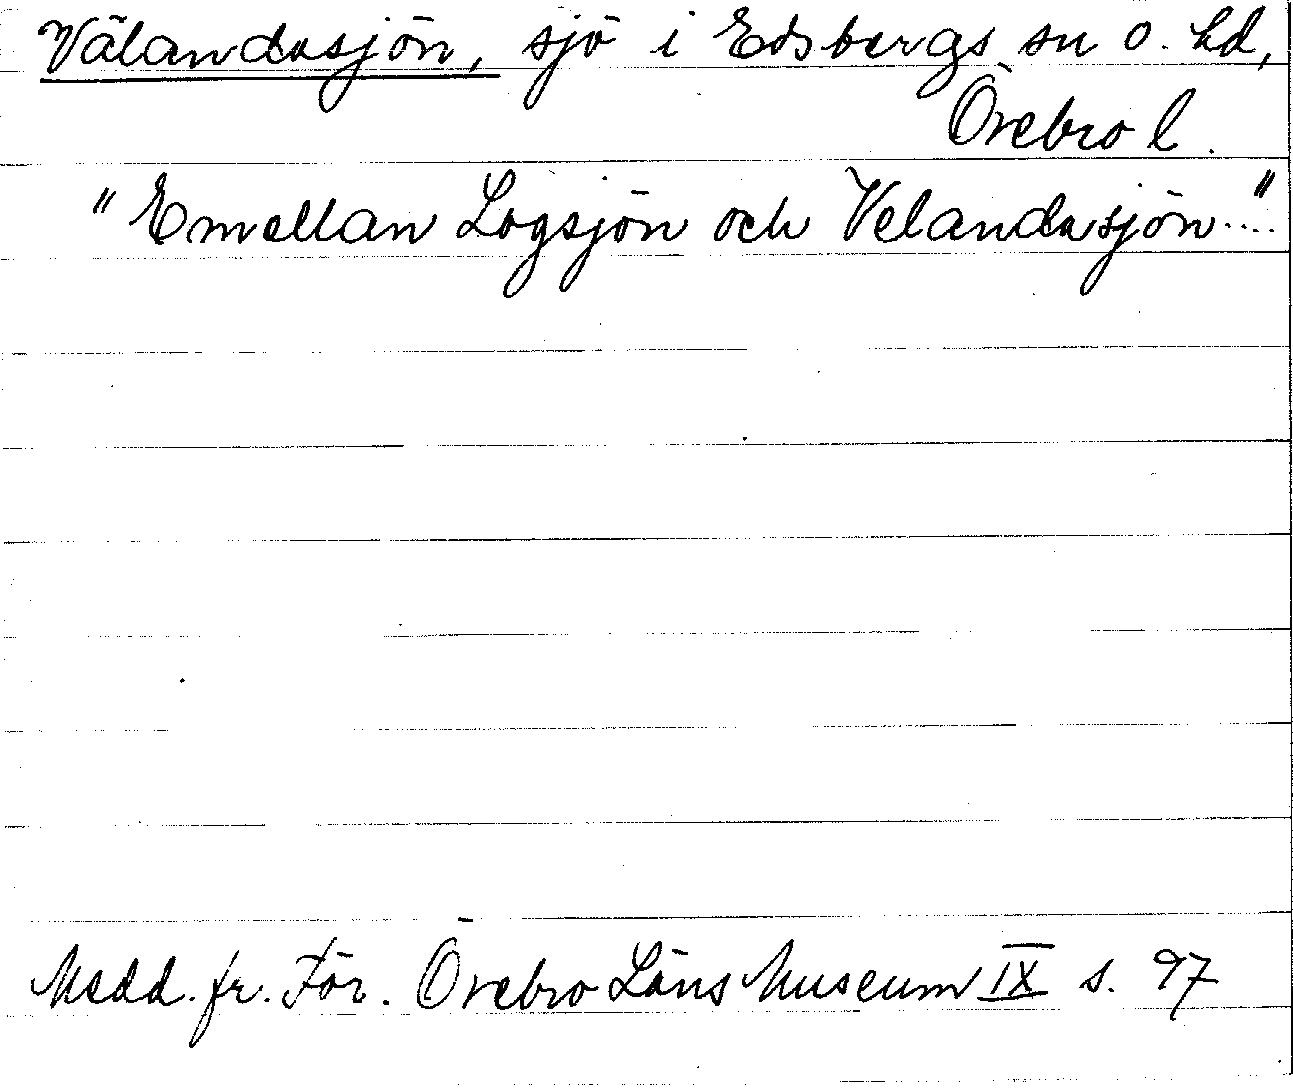 Välandasjön, sjö i Edsbergs sn o. hd,
Örebro l.
"Emellan Logsjön och Velandasjön...."
Medd. fr. För. Örebro Läns Museum IX s. 97